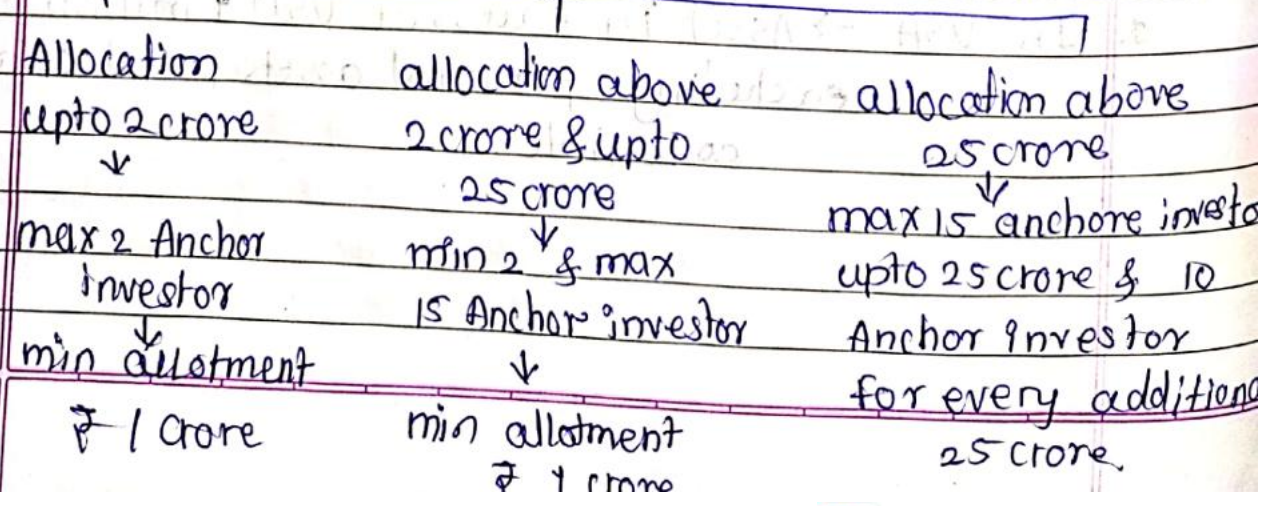 Allocation
upto 2 crore
↓
max 2 Anchor
investor
↓
min allotment
₹ 1 Crore
allocation above
2 crore & upto
25 crore
↓
min 2 & max
15 Anchor investor
↓
min allotment
₹ 1 crore
allocation above
25 crore
↓
max 15 anchore investo
upto 25 crore & 10
Anchor investor
for every additiona
25 crore.